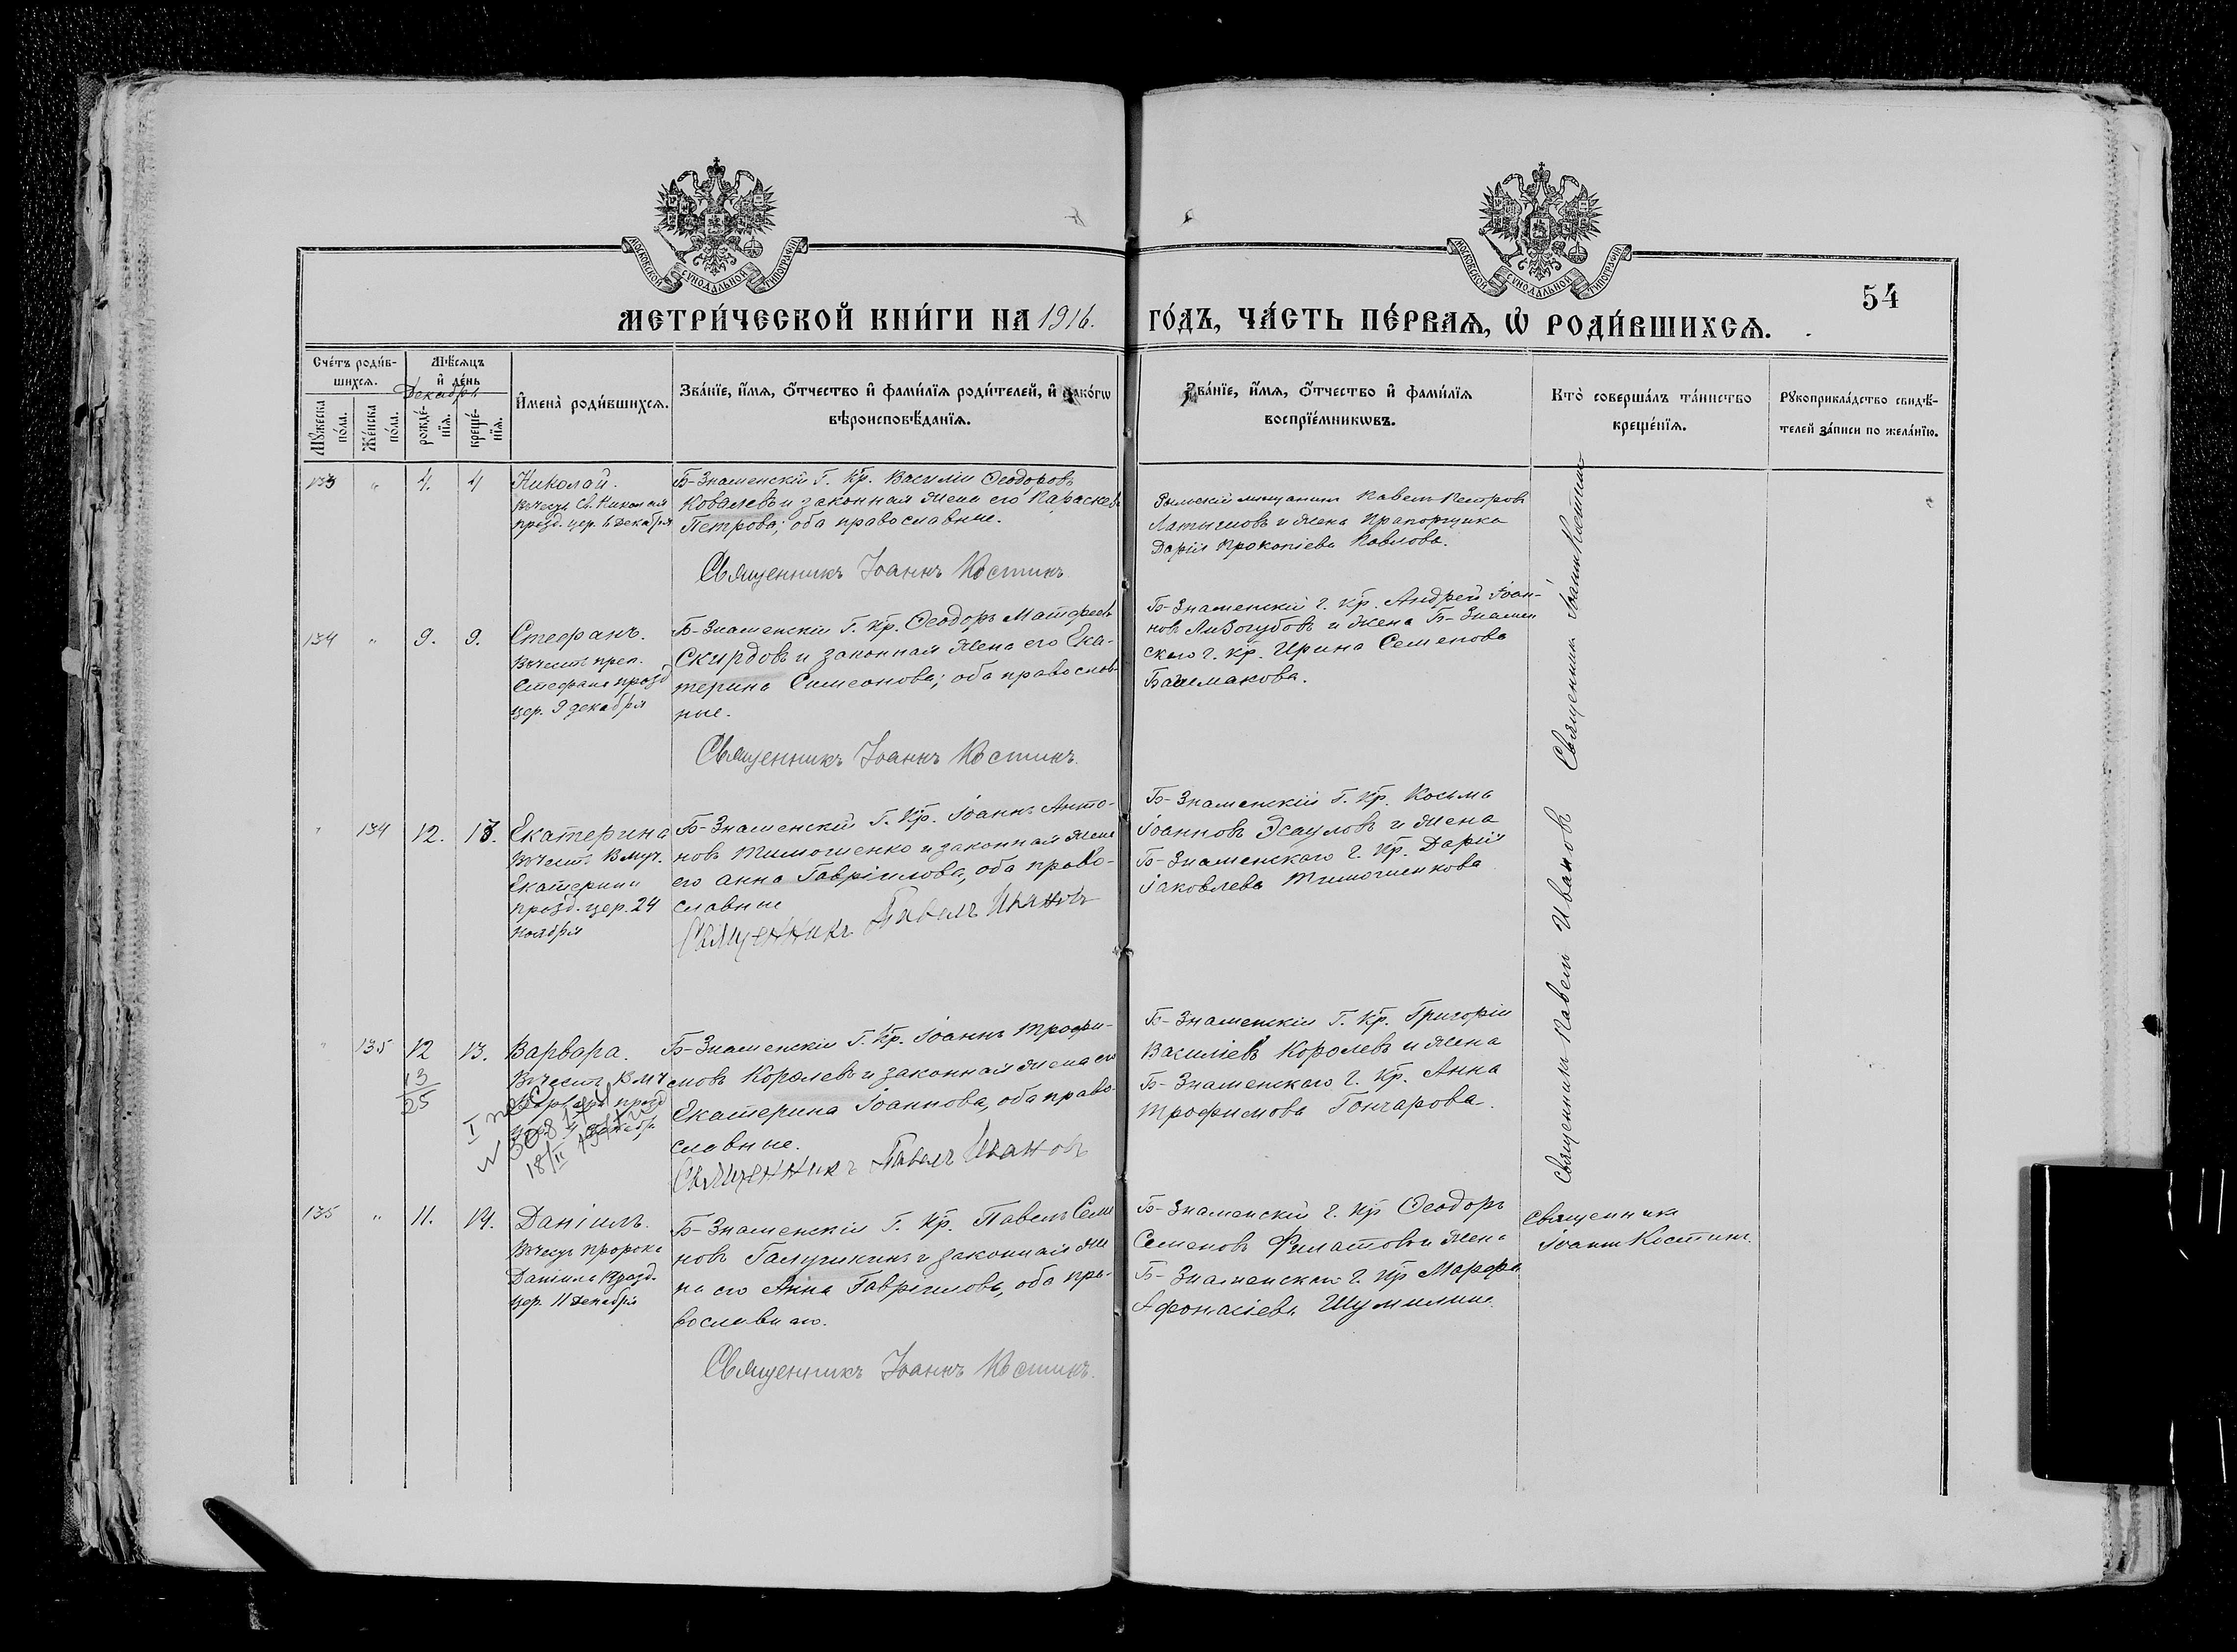 МОСКОВСКОЙ СУНОДАЛЬНОЙ ТИПОГРАФІИ
МОСКОВСКОЙ СУНОДАЛЬНОЙ ТИПОГРАФІИ
54
МЕТРИ́ЧЕСКОЙ КНИ́ГИ НА 1916. ГО́ДЪ, ЧА́СТЬ ПЕ́РВАѦ, Ѡ҆ РОДИ́ВШИХСѦ.
Сче́тъ роди́в-
шихсѧ.
Мꙋ́жеска
по́ла.
Же́нска
по́ла.
Мѣ́сѧцъ
и҆ де́нь
Декабрь
рожде́-
нїѧ.
креще́-
нїѧ.
И҆мена̀ роди́вшихсѧ.
Зва́нїе, и҆́мѧ, ѻ҆́тчество и҆ фами́лїѧ роди́телей, и҆ како́гѡ
вѣроисповѣ́данїѧ.
Зва́нїе, и҆́мѧ, ѻ҆́тчество и҆ фами́лїѧ
воспрїе́мникѡвъ.
Кто̀ соверша́лъ та́инство
креще́нїѧ.
Рꙋкоприкла́дство свидѣ́-
телей за́писи по жела́нїю.
133 " 4. 4
Николай.
Въ честь Св. Николая
празд. цер. 6 Декабря
Б-Знаменскій Г. Кр. Василій Ѳеодоровъ
Ковалевъ и законная жена его Параскева
Петрова; оба православные.
Священникъ Іоаннъ Костинъ
мещанинъ Павелъ Петровъ
Латышовъ и жена Прапорщика
Дарія Прокопіева Павлова.
Священникъ Іоаннъ Костинъ
134 " 9. 9.
Стефанъ.
Въ честь преп.
Стефана празд
цер. 9 декабря
Б-Знаменскій Г. Кр. Ѳеодоръ Матѳеевъ
Скирдовъ и законная жена его Ека-
терина Симеонова; оба православ-
ные.
Священникъ Іоаннъ Костинъ.
Б-Знаменскій г. кр. Андрей Іоан-
новъ Лизогубовъ и жена Б-Знамен
скаго г. кр. Ирина Семенова
Башмакова.
" 134 12. 13.
Екатерина
Въ честь Вмуч.
Екатерины
празд. цер. 24
Ноября
Б-Знаменскій Г. Кр. Іоаннъ Анто-
новъ Тимошенко и законная жена
его Анна Гавріилова, оба право-
славные
Священникъ Павелъ Ивановъ
Б-Знаменскій Г. Кр. Косьма
Іоанновъ Эсауловъ и жена
Б-Знаменскаго г. Кр. Дарія
Іаковлева Тимошенкова
Священникъ Павелъ Ивановъ
" 135 12 13.
13
25
Варвара.
Въ честь Вмч
Варвары празд
цер. 4 Декабр
18/II
Б-Знаменскій Г. Кр. Іоаннъ Трофи-
мовъ Королевъ и законная жена его
Екатерина Іоаннова, оба право-
славные.
Священникъ Павелъ Ивановъ
Б-Знаменскій Г. Кр. Григорій
Василіевъ Королевъ и жена
Б-Знаменскаго г. Кр. Анна
Трофимова Гончарова.
135 " 11. 14.
Даніилъ.
Въ честь пророка
Даніила празд.
цер. 11 Декабря
Б-Знаменскій Г. Кр. Павелъ Семе
новъ Галушкинъ и законная же
на его Анна Гавріилова, оба пра-
вославнаго.
Священникъ Іоаннъ Костинъ.
Б-Знаменскій г. Кр Ѳеодоръ
Семеновъ Филатовъ и жена
Б-Знаменскаго г. Кр Марѳа
Афонасіева Шумилина.
Священникъ
Іоаннъ Костинъ.